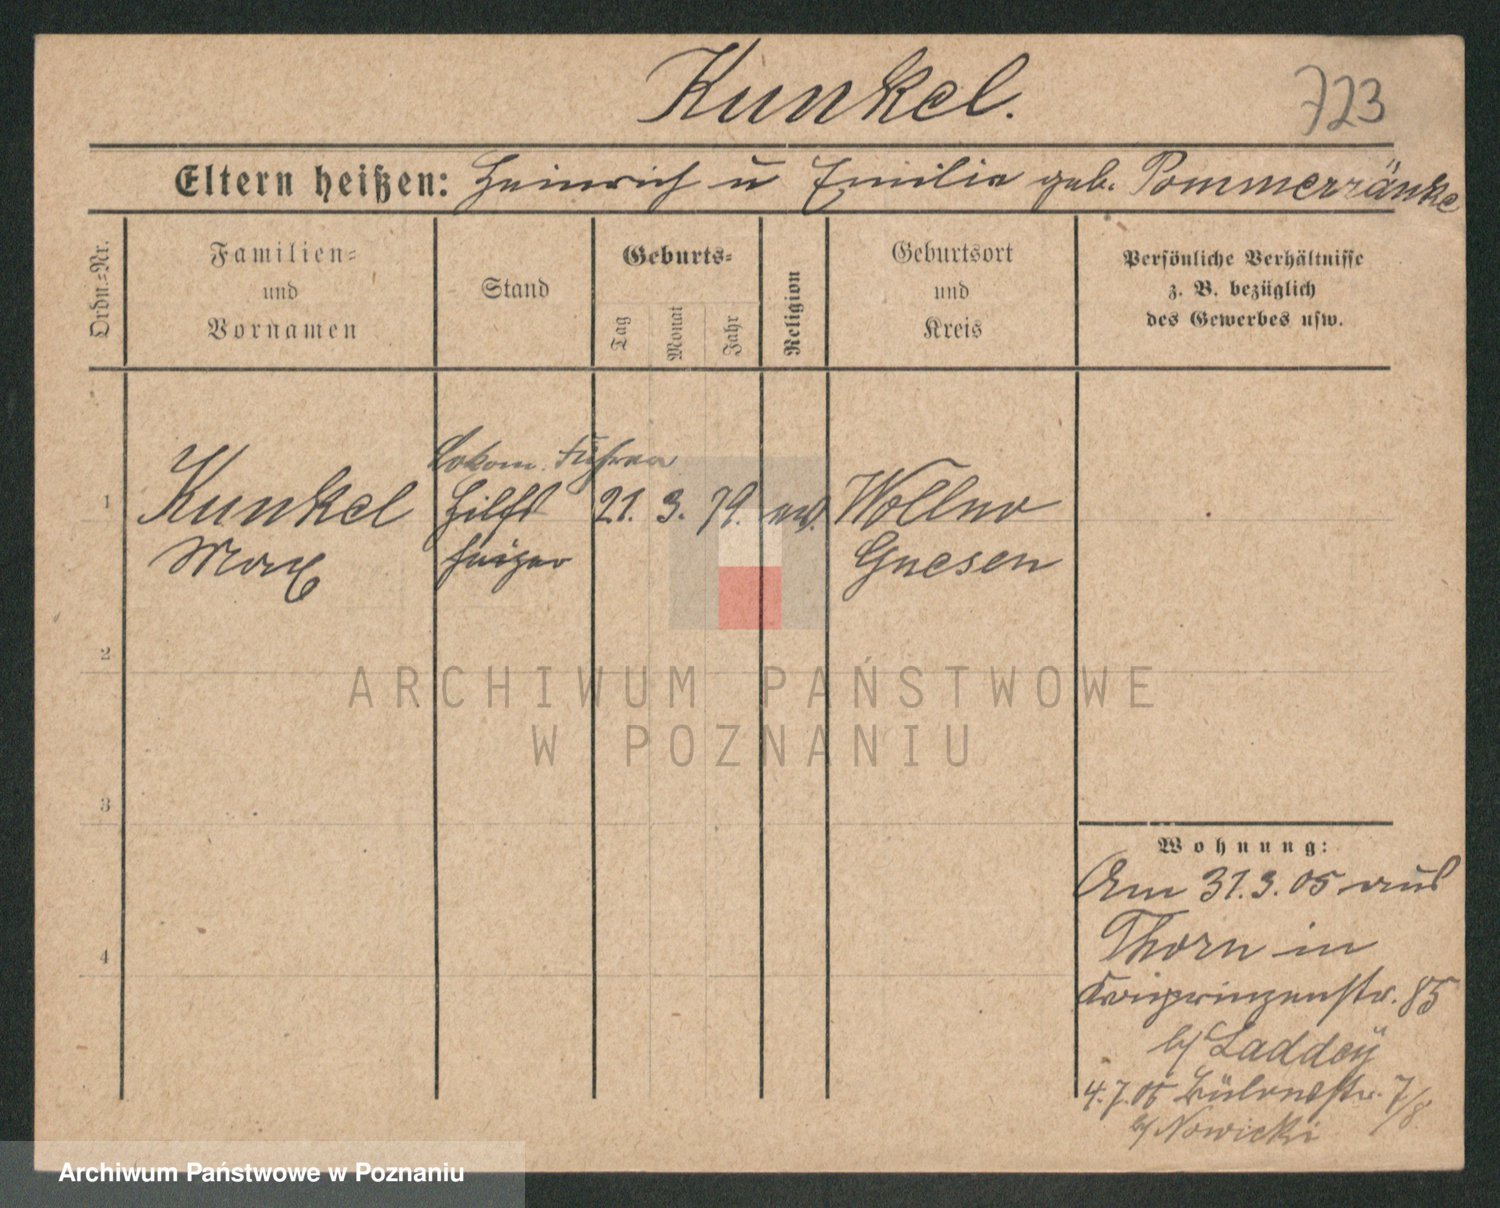 Kunkel.
723
Eltern heißen: Heinrich u Emilie geb. Pommerränke
Ordn.=Nr.
Familien=
und
Vornamen
Stand
Geburts=
Tag
Monat
Jahr
Religion
Geburtsort
und
Kreis
Persönliche Verhältnisse
z. B. bezüglich
des Gewerbes usw.
Lokom. Führer
1 Kunkel Hilfs 21. 3. 79. ev. Wollno
Max heizer Gnesen
2
ARCHIWUM PAŃSTWOWE
W POZNANIU
3
4
Wohnung:
Am 31.3.05 aus
Thorn in
Kronprinzenstr. 85
b/ Laddey
4.7.05 Bülowstr. 7/8
b/ Nowicki
Archiwum Państwowe w Poznaniu